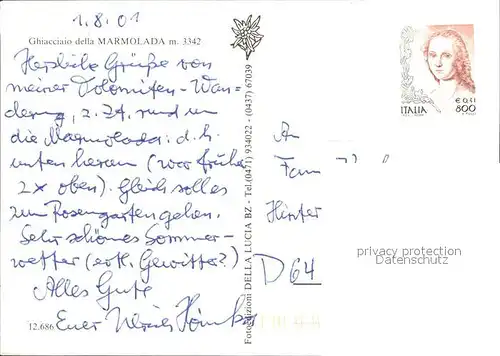 1.8.01
Ghiacciaio della MARMOLADA m. 3342
Herzliche Grüße von
meiner Dolomiten-Wan-
derung, z.Zt. rund um
die Marmolada. d.h.
unten herum (war früher
2x oben). Gleich solls
zum Rosengarten gehen.
Sehr schönes Sommer-
wetter (evtl. Gewitter?)
Alles Gute
Euer Ulrich
12.686
Fotoedizioni DELLA LUCIA BZ - Tel. (0471) 934022 - (0437) 67039
€ 0,41
800
ITALIA
An
Fam
Hinter
D 64
privacy protection
Datenschutz